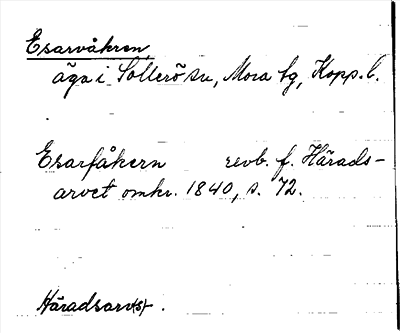 Esarvåkren,
äga i Sollerö sn, Mora tg, Kopp. l.
Esarfåkern revb. f. Härads-
arvet omkr. 1840, s. 72.
Häradsarv(s)-.